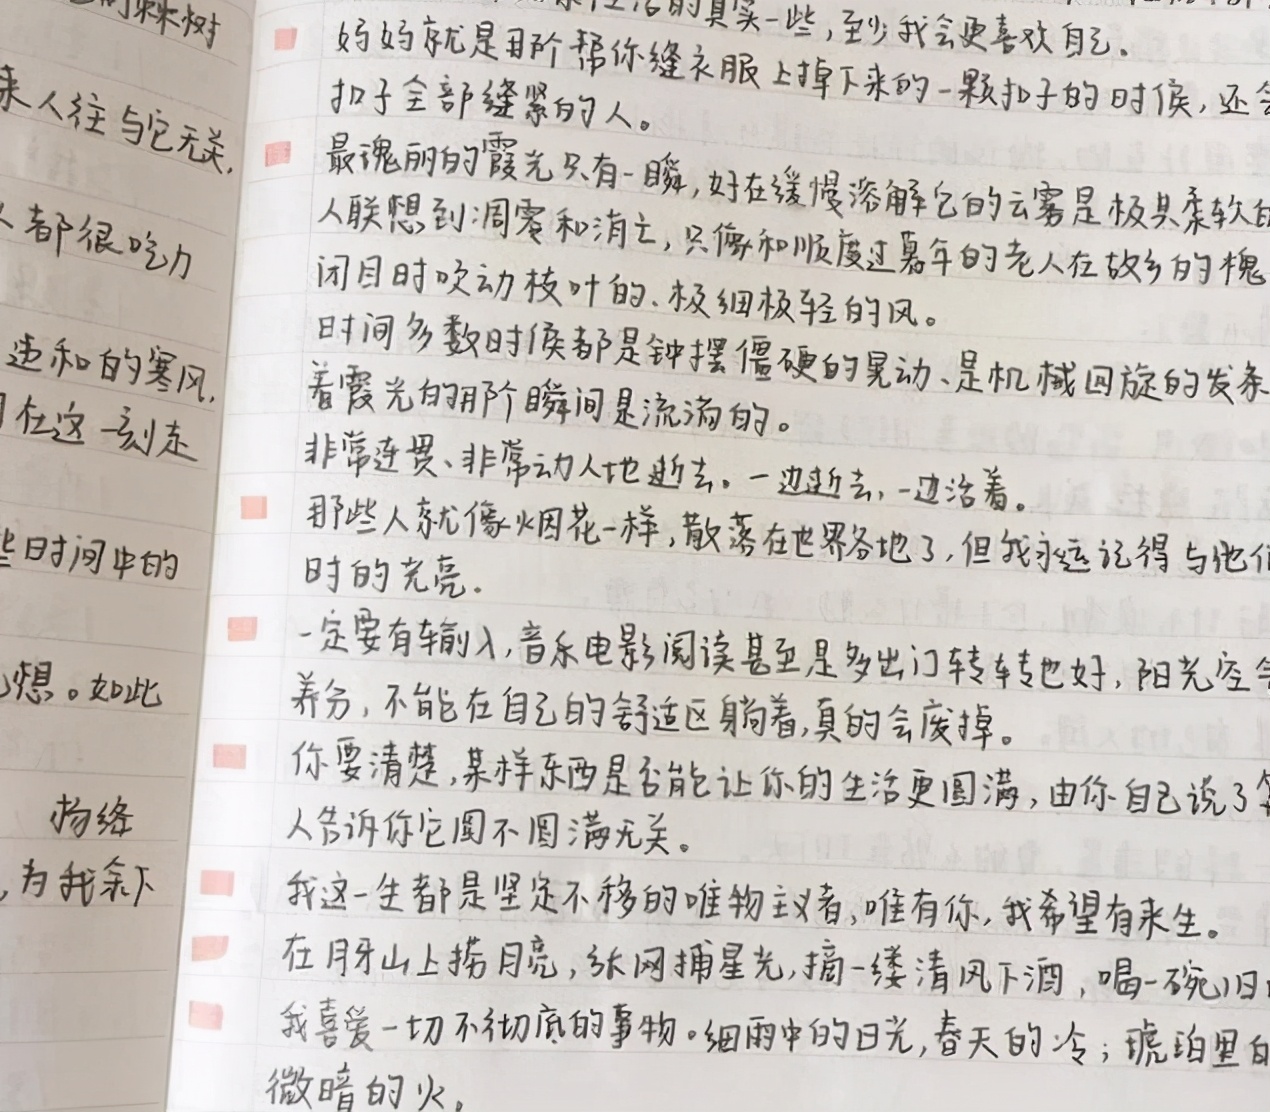 的冧树
来人往与它无关,
人都很吃力
违和的寒风,
在这一刻走
些时间中的
想。如此
杨绛
,为我余下
生活的真实一些,至少我会更喜欢自己。
妈妈就是那个帮你缝衣服上掉下来的一颗扣子的时候,还会
扣子全部缝紧的人。
最瑰丽的霞光只有一瞬,好在缓慢溶解它的云雾是极其柔软的
人联想到凋零和消亡,只像和顺度过暮年的老人在故乡的槐
闭目时吹动枝叶的、极细极轻的风。
时间多数时候都是钟摆僵硬的晃动、是机械回旋的发条
着霞光的那个瞬间是流淌的。
非常连贯、非常动人地逝去。一边逝去,一边活着。
那些人就像烟花一样,散落在世界各地了,但我永远记得与他们
时的光亮.
一定要有输入,音乐电影阅读甚至是多出门转转也好,阳光空气
养分,不能在自己的舒适区躺着,真的会废掉。
你要清楚,某样东西是否能让你的生活更圆满,由你自己说了算
人告诉你它圆不圆满无关。
我这一生都是坚定不移的唯物主义者,唯有你,我希望有来生。
在月牙山上捞月亮,张网捕星光,摘一缕清风下酒,喝一碗旧
我喜爱一切不彻底的事物。细雨中的日光,春天的冷;琥珀里的
微暗的火。